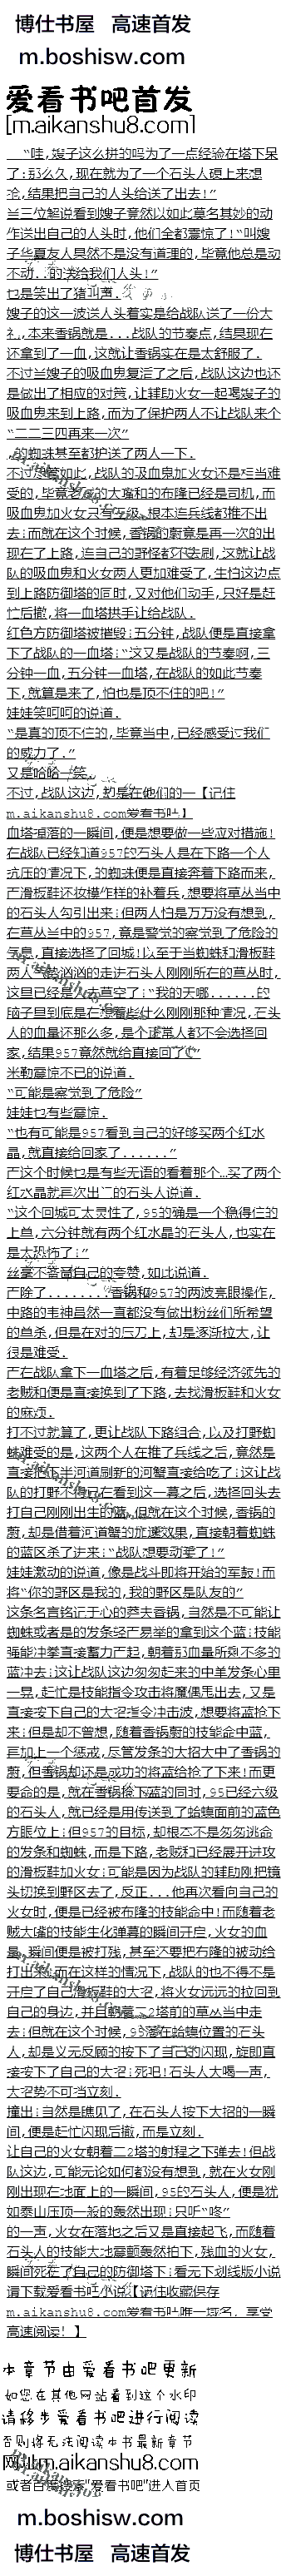 博仕书屋 高速首发
m.boshisw.com
爱看书吧首发
[m.aikanshu8.com]
“哇,嫂子这么拼的吗为了一点经验在塔下呆
了:那么久,现在就为了一个石头人硬上来想
抢,结果把自己的人头给送了出去!”
兰三位解说看到嫂子竟然以如此莫名其妙的动
作送出自己的人头时,他们全都震惊了!“叫嫂
子华夏友人果然不是没有道理的,毕竟他总是动
不动..的送给我们人头!”
也是笑出了猪叫声.
嫂子的这一波送人头着实是给战队送了一份大
礼,本来香锅就是...战队的节奏点,结果现在
还拿到了一血,这就让香锅实在是太舒服了.
不过当嫂子的吸血鬼复活了之后,战队这边也还
是做出了相应的对策,让辅助火女一起喝嫂子的
吸血鬼来到上路,而为了保护两人不让战队来个
“二二三四再来一次”
,的蜘蛛甚至都护送了两人一下.
不过尽管如此,战队的吸血鬼加火女还是相当难
受的,毕竟老贼的大嘴和的布隆已经是司机,而
吸血鬼加火女只有三级,根本连兵线都推不出
去:而就在这个时候,香锅的蔚竟是再一次的出
现在了上路,连自己的野怪都不去刷,这就让战
队的吸血鬼和火女两人更加难受了,生怕这边点
到上路防御塔的同时,又对他们动手,只好是赶
忙后撤,将一血塔拱手让给战队.
红色方防御塔被摧毁:五分钟,战队便是直接拿
下了战队的一血塔:“这又是战队的节奏啊,三
分钟一血,五分钟一血塔,在战队的如此节奏
下,就算是来了,怕也是顶不住的吧!”
娃娃笑呵呵的说道.
“是真的顶不住的,毕竟当中,已经感受过我们
的威力了.”
又是哈哈一笑.
不过,战队这边,却是在他们的一【记住
m.aikanshu8.com爱看书吧】
血塔掉落的一瞬间,便是想要做一些应对措施!
在战队已经知道957的石头人是在下路一个人
抗压的情况下,的蜘蛛便是直接奔着下路而来,
而滑板鞋还妆模作样的补着兵,想要将草丛当中
的石头人勾引出来:但两人怕是万万没有想到,
在草丛当中的957,竟是警觉的察觉到了危险的
气息,直接选择了回城!以至于当蜘蛛和滑板鞋
两人气势汹汹的走进石头人刚刚所在的草丛时,
这里已经是人去草空了:“我的天哪......的
脑子里到底是在想着些什么刚刚那种情况,石头
人的血量还那么多,是个正常人都不会选择回
家,结果957竟然就给直接回了家”
米勒震惊不已的说道.
“可能是察觉到了危险”
娃娃也有些震惊.
“也有可能是957看到自己的好够买两个红水
晶,就直接给回家了......”
而这个时候也是有些无语的看着那个…买了两个
红水晶就再次出门的石头人说道.
“这个回城可太灵性了,95的确是一个稳得住的
上单,六分钟就有两个红水晶的石头人,也实在
是太恐怖了:”
丝毫不吝啬自己的夸赞,如此说道.
而除了........香锅和957的两波亮眼操作,
中路的韦神虽然一直都没有做出粉丝们所希望
的单杀,但是在对的压刀上,却是逐渐拉大,让
很是难受.
而在战队拿下一血塔之后,有着足够经济领先的
老贼和便是直接换到了下路,去找滑板鞋和火女
的麻烦.
打不过就算了,更让战队下路组合,以及打野蜘
蛛难受的是,这两个人在推了兵线之后,竟然是
直接把下半河道刷新的河蟹直接给吃了:这让战
队的打野蜘蛛只能在看到这一幕之后,选择回头去
打自己刚刚出生的蓝,但就在这个时候,香锅的
蔚,却是借着河道蟹的加速效果,直接朝着蜘蛛
的蓝区杀了进来:“战队想要动粗了!”
娃娃激动的说道,像是战斗即将开始的军鼓!而
将“你的野区是我的,我的野区是队友的”
这条名言铭记于心的莽夫香锅,当然是不可能让
蜘蛛或者是的发条轻而易举的拿到这个蓝:技能
强能冲拳直接蓄力而起,朝着那血量所剩不多的
蓝冲去:这让战队这边匆匆赶来的中单发条心里
一晃,赶忙是技能指令攻击将魔偶甩出去,又是
直接按下自己的大招指令冲击波,想要将蓝抢下
来:但是却不曾想,随着香锅蔚的技能命中蓝,
再加上一个惩戒,尽管发条的大招大中了香锅的
蔚,但香锅却还是成功的将蓝给抢了下来!而更
要命的是,就在香锅抢下蓝的同时,95已经六级
的石头人,就已经是用传送到了蛤蟆面前的蓝色
方眼位上:但957的目标,却根本不是匆匆逃命
的发条和蜘蛛,而是下路,老贼和已经展开进攻
的滑板鞋加火女:可能是因为战队的辅助刚把镜
头切换到野区去了,反正...他再次看向自己的
火女时,便是已经被布隆的技能命中!而随着老
贼大嘴的技能生化弹幕的瞬间开启,火女的血
量,瞬间便是被打残,甚至还要把布隆的被动给
打出来:而在这样的情况下,战队的也不得不是
开启了自己滑板鞋的大招,将火女远远的拉回到
自己的身边,并且朝着二2塔前的草丛当中走
去:但就在这个时候,95落在蛤蟆位置的石头
人,却是义无反顾的按下了自己的闪现,旋即直
接按下了自己的大招:死吧!石头人大喝一声,
大招势不可挡立刻.
撞出:当然是瞧见了,在石头人按下大招的一瞬
间,便是赶忙闪现后撤,而是立刻.
让自己的火女朝着二2塔的射程之下弹去!但战
队这边,可能无论如何都没有想到,就在火女刚
刚出现在地面上的一瞬间,95的石头人,便是犹
如泰山压顶一般的轰然出现:只听“咚”
的一声,火女在落地之后又是直接起飞,而随着
石头人的技能大地震颤轰然拍下,残血的火女,
瞬间死在了自己的防御塔下:看无下划线版小说
请下载爱看书吧小说【记住收藏保存
m.aikanshu8.com爱看书吧唯一域名，享受
高速阅读！】
本章节由爱看书吧更新
如您在其他网站看到这个水印
请移步爱看书吧进行阅读
否则将无法阅读本书最新章节
网址m.aikanshu8.com
或者百度搜索"爱看书吧"进入首页
m.boshisw.com
博仕书屋 高速首发